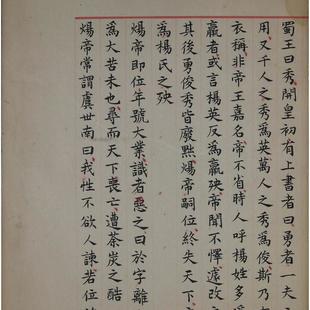 蜀王曰秀開皇初有上書者曰勇者一夫之
用又千人之秀為英萬人之秀為俊斯乃布
衣稱非帝王嘉名帝不省時人呼楊姓多為
羸者或言楊英反為羸殃帝聞不懌遽改之
其後勇俊秀皆廢黜煬帝嗣位終失天下卒
為楊氏之殃
煬帝即位年號大業識者惡之曰於字離合
為大苦未也尋而天下喪亡遭荼炭之酷
煬帝常謂虞世南曰我性不欲人諫若位